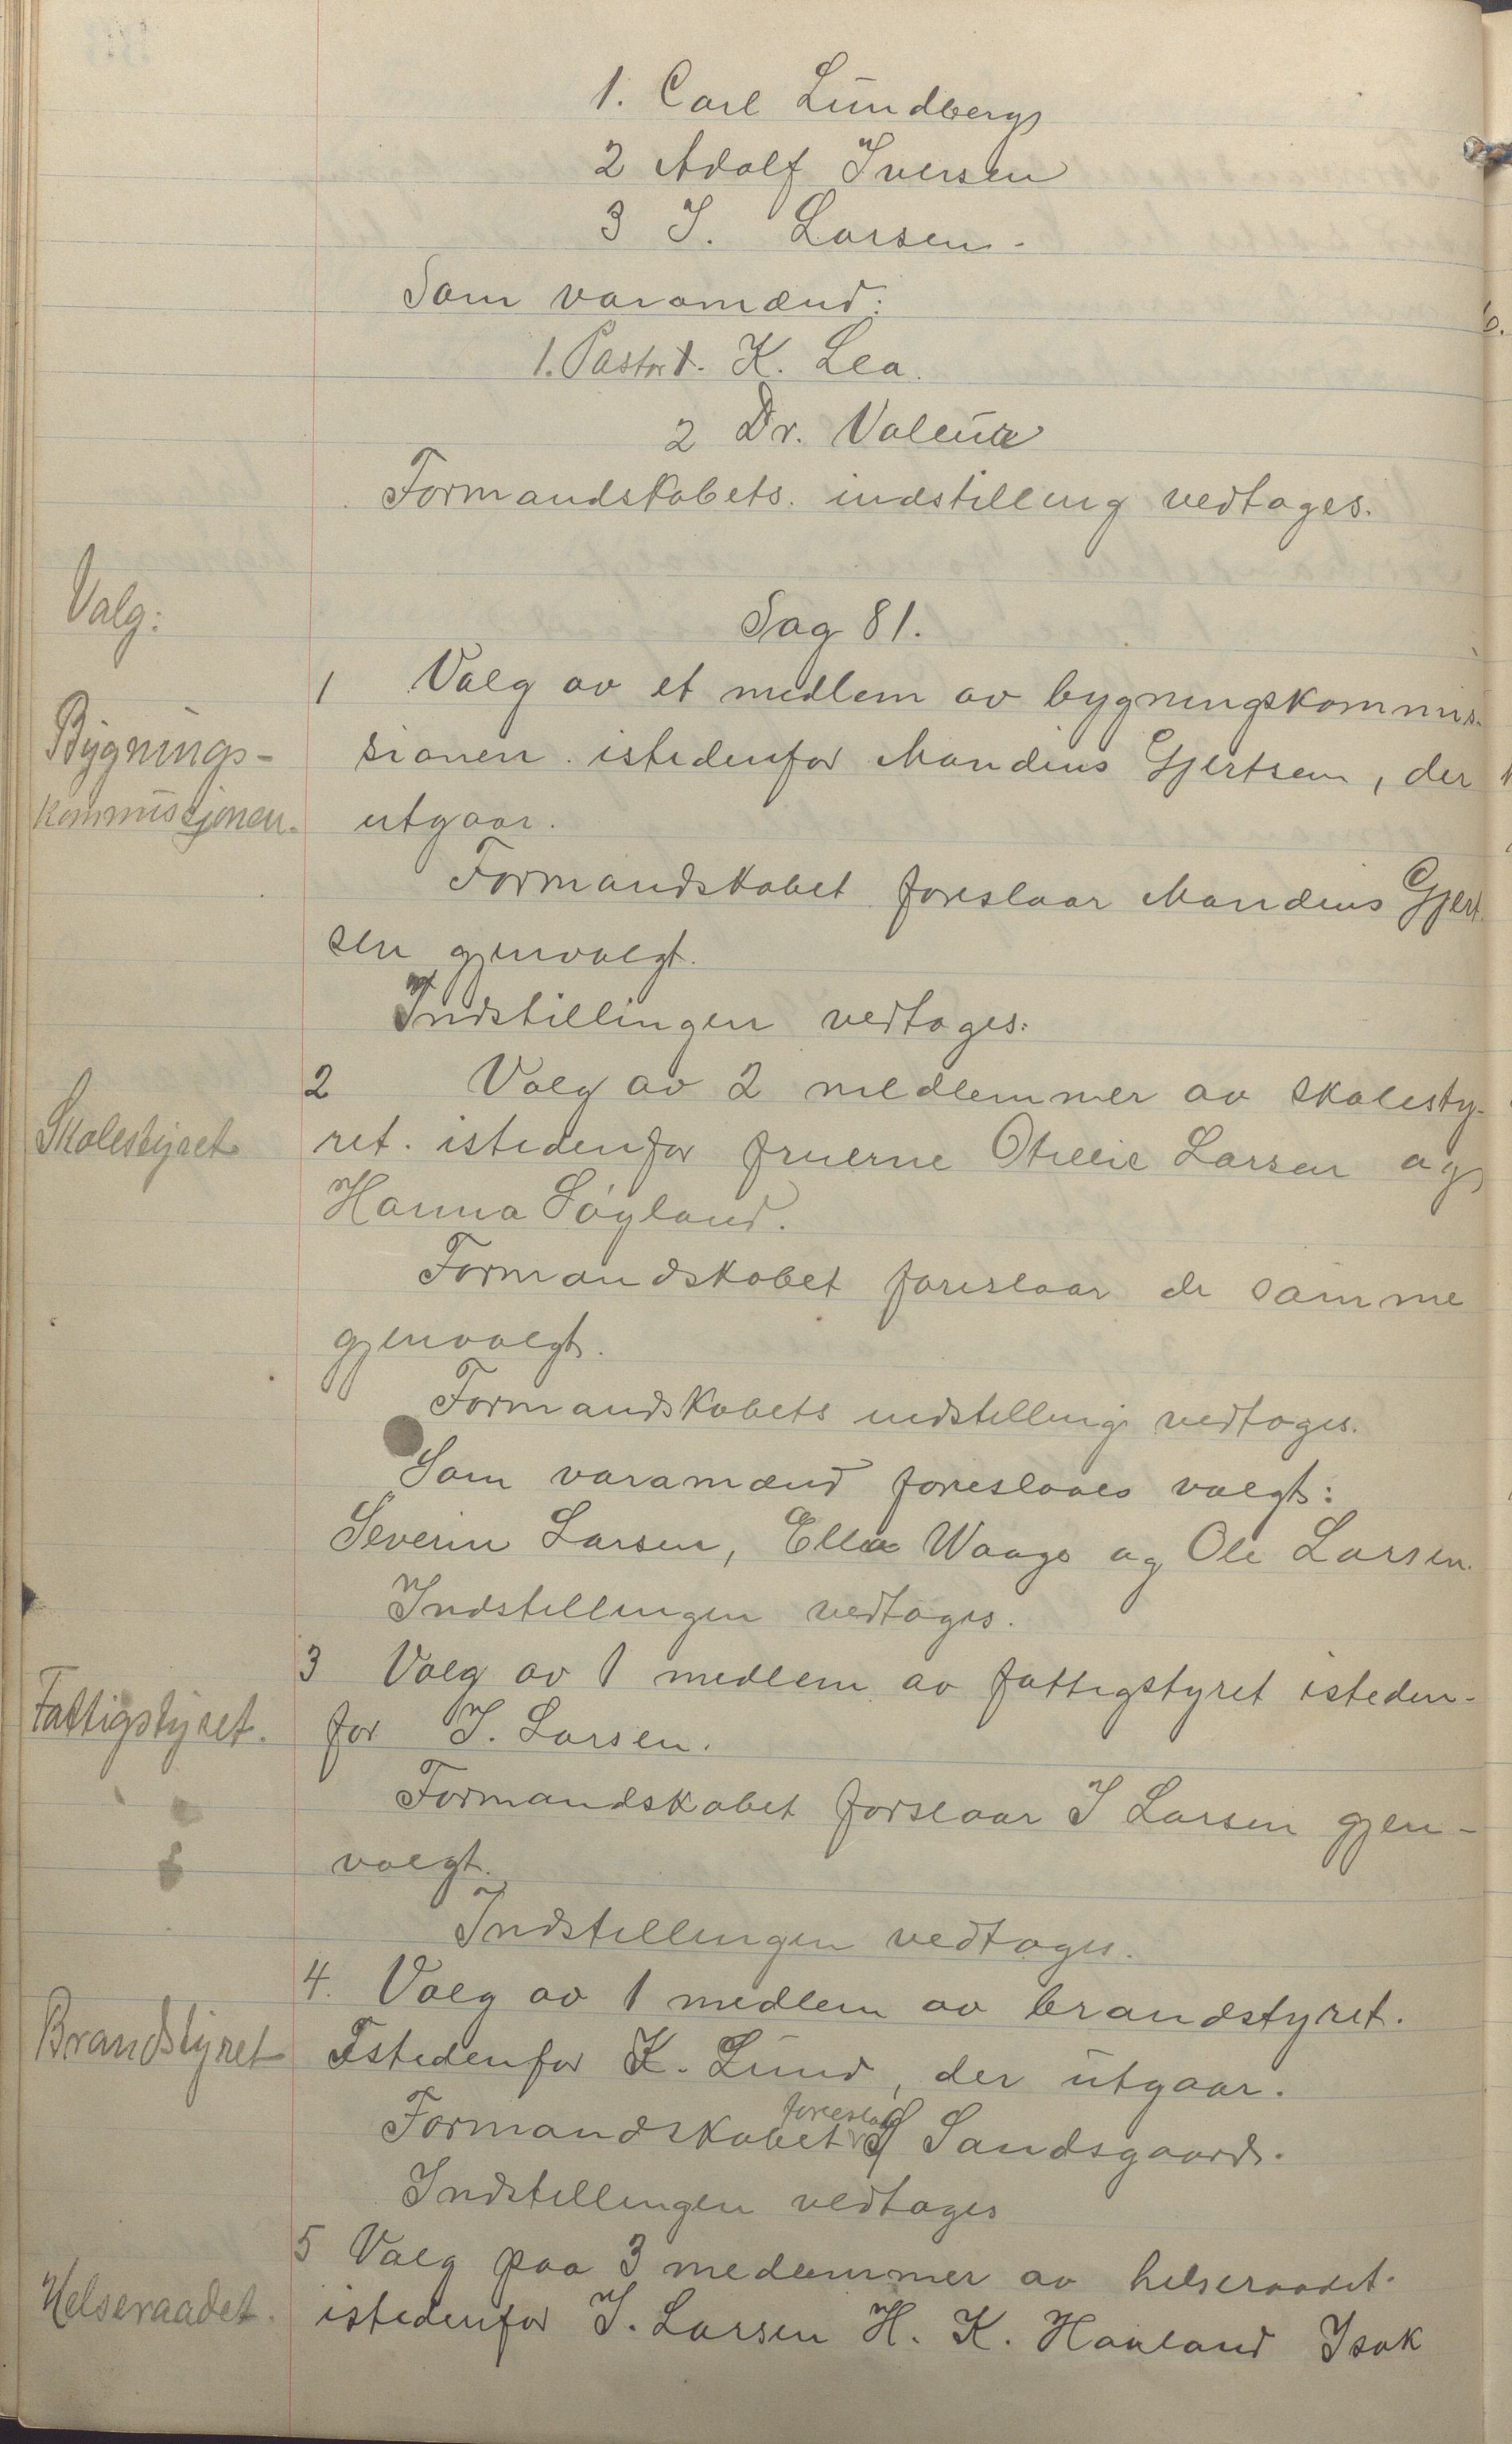 1. Carl Lundberg
2 Adolf Iversen
3 I. Larsen.
Som varamænd:
1. Pastor K. Lea.
2 Dr. Valeur
Formandskabets indstilling vedtages.
Valg:
Sag 81.
1 Valg av et medlem av bygningskommis-
Bygnings-
kommissjonen.
sionen istedenfor Mandius Gjertsen, der
utgaar.
Formandskabet foreslaar Mandius Gjert-
sen gjenvalgt.
Indstillingen vedtages.
2 Valg av 2 medlemmer av skolesty-
Skolestyret
ret istedenfor fruerne Otillie Larsen og
Hanna Søyland.
Formandskabet foreslaar de samme
gjenvalgt.
Formandskabets indstilling vedtages.
Som varamænd foreslaaes valgt:
Severin Larsen, Ella Waage og Ole Larsen.
Indstillingen vedtages.
3 Valg av 1 medlem av fattigstyret isteden-
Fattigstyret.
for I. Larsen.
Formandskabet forslaar I Larsen gjen-
valgt.
Indstillingen vedtages.
4. Valg av 1 medlem av brandstyret.
Brandstyret
Istedenfor K. Lund, der utgaar.
Formandskabet foreslaar S Sandsgaard.
Indstillingen vedtages
5 Valg paa 3 medlemmer av helseraadet.
Helseraadet.
istedenfor I. Larsen H. K. Haaland Isak